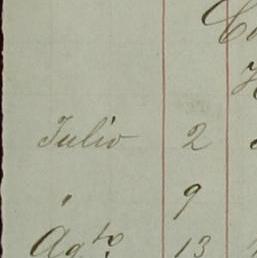 Julio 2
" 9
Agto. 13